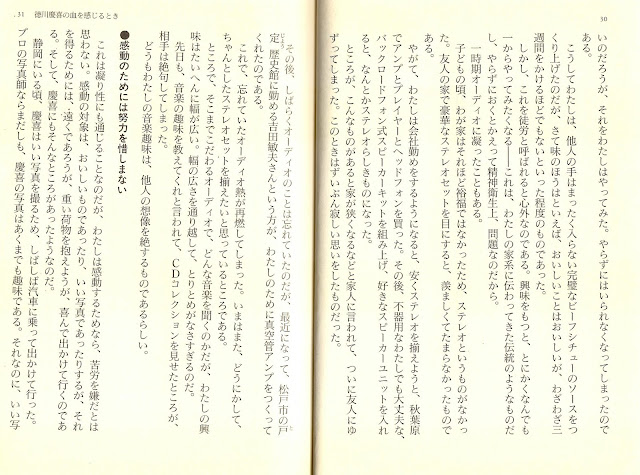 30
いのだろうが、それをわたしはやってみた。やらずにはいられなくなってしまったので
ある。
こうしてわたしは、他人の手はまったく入らない完璧なビーフシチューのソースをつ
くり上げたのだが、さて味のほうはといえば、おいしいことはおいしいが、わざわざ三
週間をかけるほどでもないといった程度のものであった。
しかし、これを徒労と呼ばれると心外なのである。興味をもつと、とにかくなんでも
一からやってみたくなる――これは、わたしの家系に伝わってきた伝統のようなものだ
し、やらずにおくとかえって精神衛生上、問題なのだから。
一時期オーディオに凝ったこともある。
子どもの頃、わが家はそれほど裕福ではなかったため、ステレオというものがなかっ
た。友人の家で豪華なステレオセットを目にすると、羨ましくてたまらなかったもので
ある。
やがて、わたしは会社勤めをするようになると、安くステレオを揃えようと、秋葉原
でアンプとプレイヤーとヘッドフォンを買った。その後、不器用なわたしでも大丈夫な、
バックロードフォン式スピーカーキットを組み上げ、好きなスピーカーユニットを入れ
ると、なんとかステレオらしきものになった。
ところが、こんなものがあると家が狭くなるなどと家人に言われて、ついに友人にゆ
ずってしまった。このときはずいぶん寂しい思いをしたものだった。
31 徳川慶喜の血を感じるとき
その後、しばらくオーディオのことは忘れていたのだが、最近になって、松戸市の戸
定歴史館に勤める吉田敏夫さんという方が、わたしのために真空管アンプをつくって
じょう
くれたのである。
これで、忘れていたオーディオ熱が再燃してしまった。いまはまた、どうにかして、
ちゃんとしたステレオセットを揃えたいと思っているところである。
ところで、そこまでこだわるオーディオで、どんな音楽を聞くのかだが、わたしの興
味はたいへんに幅が広い。幅の広さを通り越して、とりとめがなさすぎるのだ。
先日も、音楽の趣味を教えてくれと言われて、ＣＤコレクションを見せたところが、
相手は絶句してしまった。
どうもわたしの音楽趣味は、他人の想像を絶するものであるらしい。
●感動のためには努力を惜しまない
これは凝り性にも通じることなのだが、わたしは感動するためなら、苦労を嫌だとは
思わない。感動の対象は、おいしいものであったり、いい写真であったりするが、それ
を得るためには、遠くであろうが、重い荷物を抱えようが、喜んで出かけて行くのであ
る。そして、慶喜にもそんなところがあったようなのだ。
静岡にいる頃、慶喜はいい写真を撮るため、しばしば汽車に乗って出かけて行った。
プロの写真師ならまだしも、慶喜の写真はあくまでも趣味である。それなのに、いい写